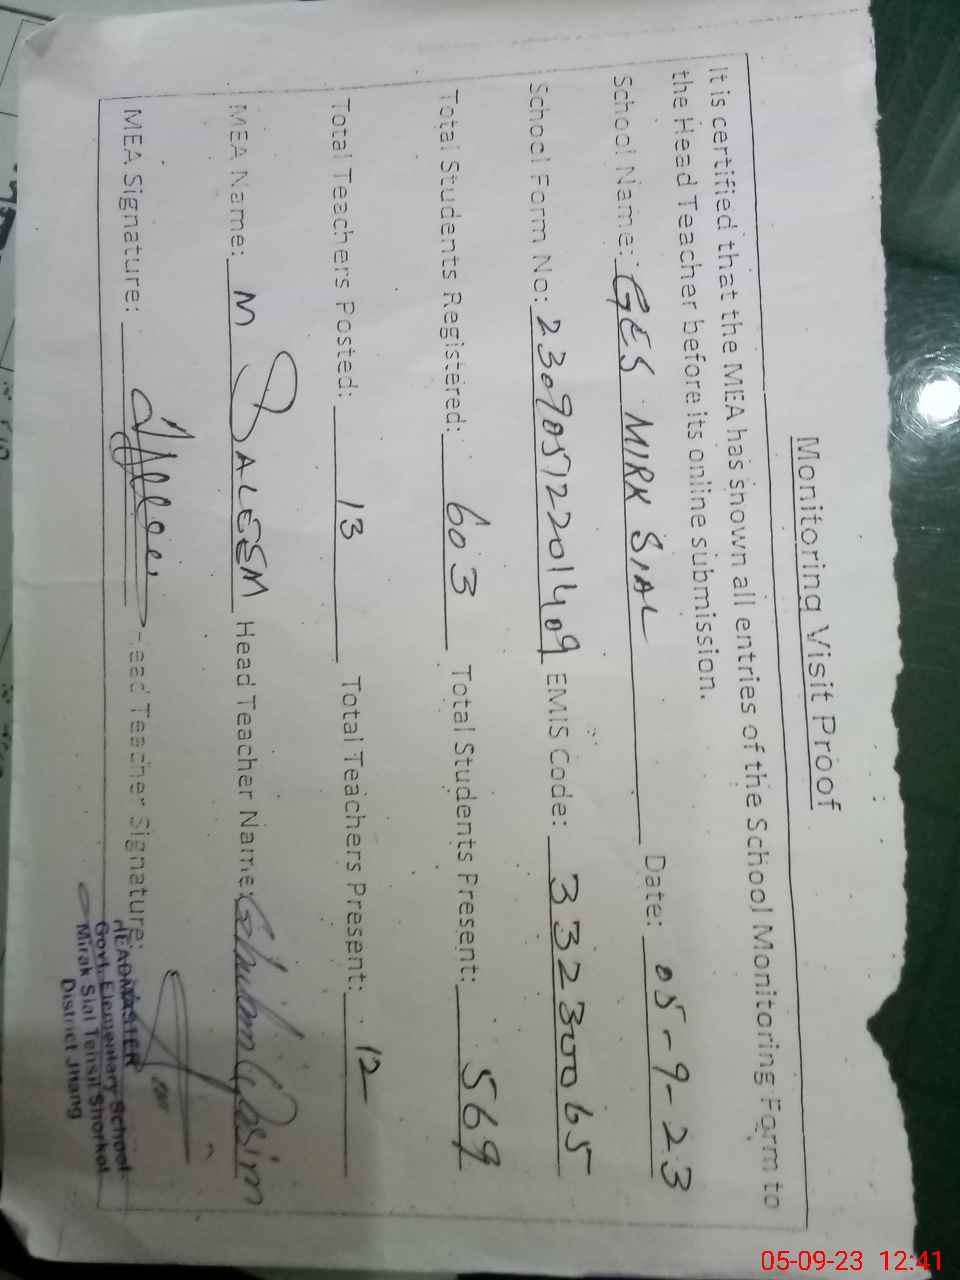 Monitoring Visit Proof
It is certified that the MEA has shown all entries of the School Monitoring Form to
the Head Teacher before its online submission.
School Name: GES MIRK SIAL Date: 05-9-23
School Form No: 23090512201409 EMIS Code: 33230065
Total Students Registered: 603 Total Students Present: 569
Total Teachers Posted: 13 Total Teachers Present: 12
MEA Name: M SALEEM Head Teacher Name: Ghulam Qasim
MEA Signature: Head Teacher Signature:
HEADMASTER
Govt. Elementary School
Mirak Sial Tehsil Shorkot
District Jhang
05-09-23 12:41